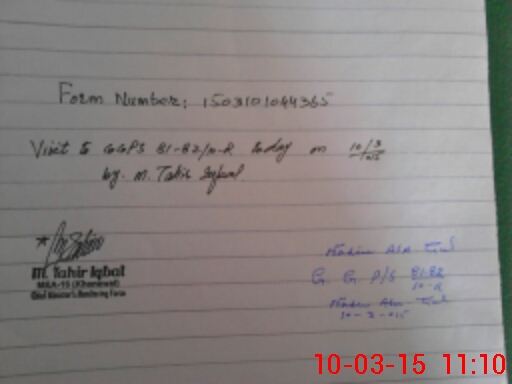 Form Number: 1503101044365
Visit to GGPS 81-82/10-R today on 10/3
by M. Tahir Iqbal
M. Tahir Iqbal
MEA-15 (Khanewal)
Chief Minister's Monitoring Force
G. G. P/S 81-82
10-R
10-3-015
10-03-15 11:10